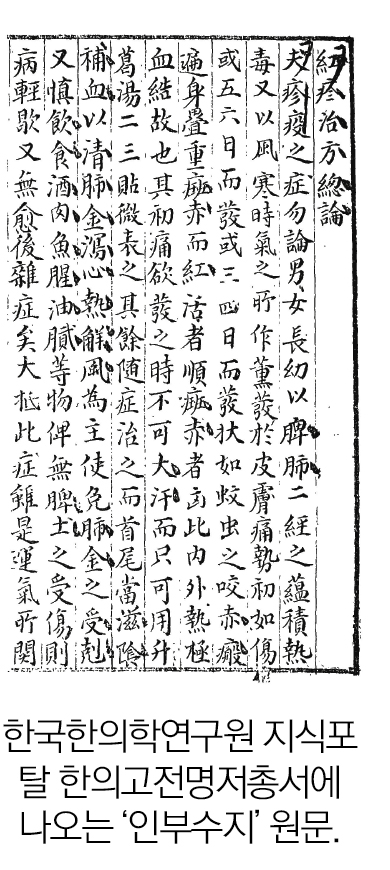 紅疹治方總論
夫疹瘦之症勿論男女長幼以脾肺二經之蘊積熱
毒又以風寒時氣之所作薰發於皮膚痛勢初如傷
或五六日而發或三四日而發狀如蚊虫之咬赤癜
遍身疊重赤而紅活者順赤者凶此內外熱極
血結故也其初痛欲發之時不可大汗而只可用升
葛湯二三貼微表之其餘随症治之而首尾當滋陰
補血以清肺金瀉心熱觧風為主使免肺金之受剋
又慎飲食酒肉魚腥油膩等物俾無脾土之受傷則
病輕歇又無愈後雜症矣大抵此症雖是運氣所関
한국한의학연구원 지식포
탈 한의고전명저총서에
나오는 ‘인부수지’ 원문.